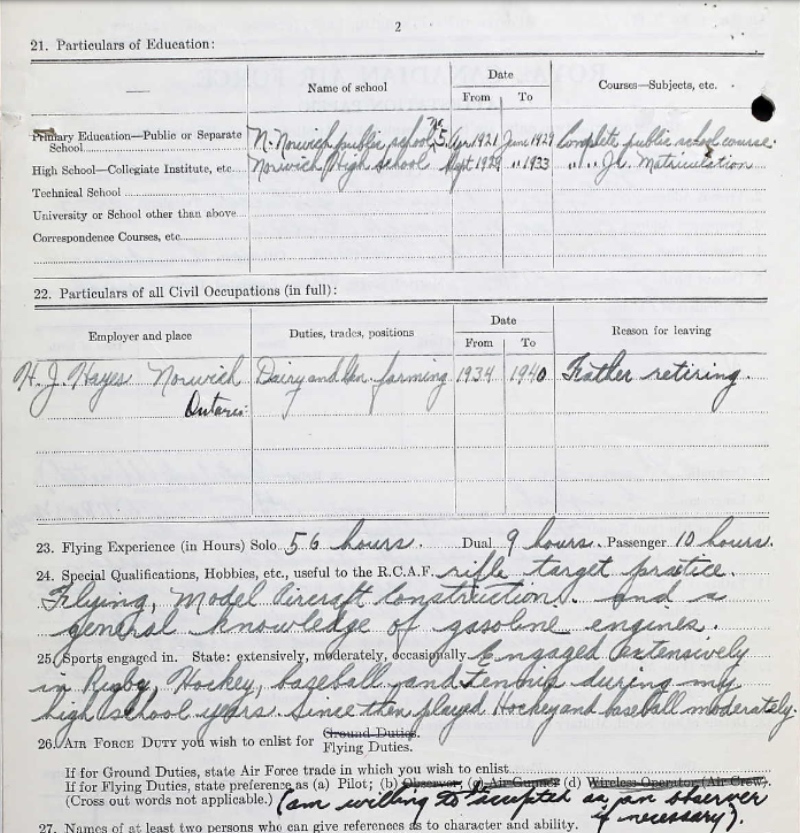 2
21. Particulars of Education:
Name of school
Date
From To
Courses—Subjects, etc.
Primary Education—Public or Separate School N. Norwich public school No 5. Apr 1921 June 1929 Complete public school course.
High School—Collegiate Institute, etc. Norwich High school Sept 1929 " 1933 " " Jr. Matriculation
Technical School
University or School other than above
Correspondence Courses, etc.
22. Particulars of all Civil Occupations (in full):
Employer and place
Duties, trades, positions
Date
From To
Reason for leaving
H. J. Hayes Norwich Dairy and Gen. farming 1934 1940 Father retiring.
Ontario.
23. Flying Experience (in Hours) Solo 56 hours. Dual 9 hours. Passenger 10 hours.
24. Special Qualifications, Hobbies, etc., useful to the R.C.A.F. rifle target practice.
Flying, Model Aircraft Construction. and a
general knowledge of gasoline engines.
25. Sports engaged in. State: extensively, moderately, occasionally Engaged extensively
in Rugby, Hockey, baseball and tennis during my
high school years. Since then played Hockey and baseball moderately.
26. AIR FORCE DUTY you wish to enlist for Ground Duties.
Flying Duties.
If for Ground Duties, state Air Force trade in which you wish to enlist
If for Flying Duties, state preference as (a) Pilot; (b) Observer; (c) Air Gunner (d) Wireless Operator (Air Crew).
(Cross out words not applicable.) (am willing to accepted as an observer
if necessary).
27. Names of at least two persons who can give references as to character and ability.